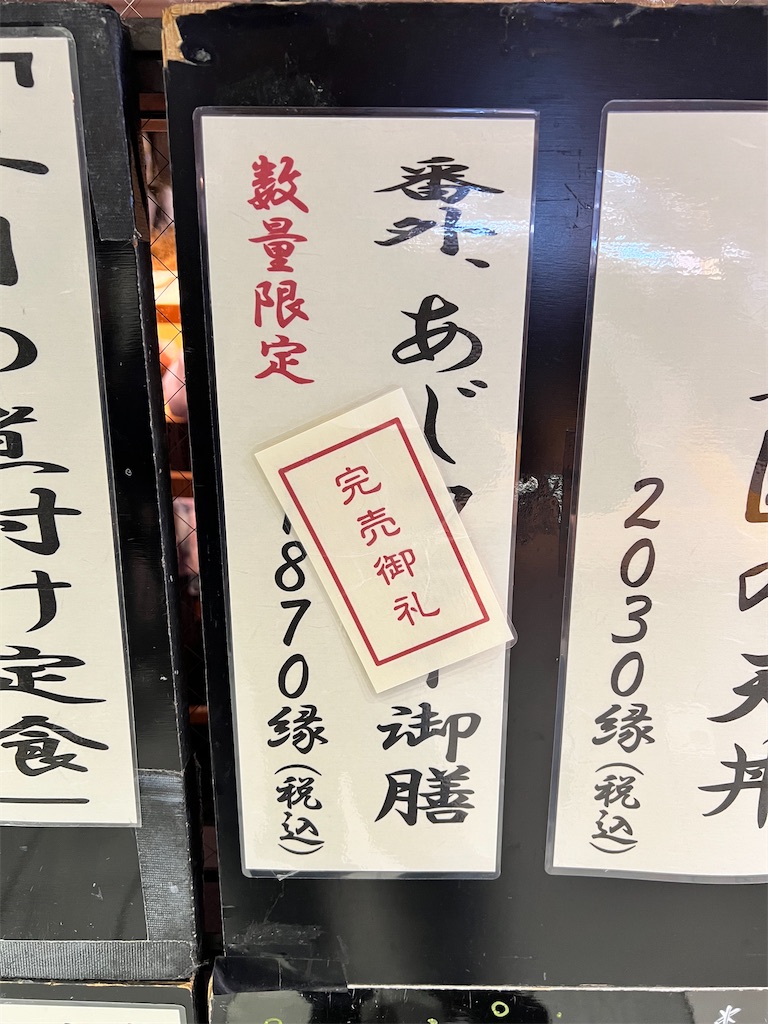 2030縁(税込)
番外、あじ
御膳
数量限定
870縁(税込)
完売御礼
の煮付け定食
の天丼